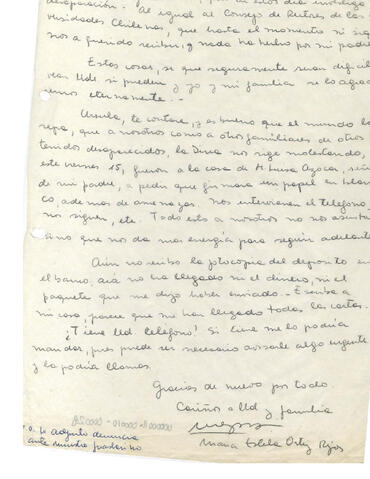 desaparición. Al igual al Consejo de Rectores de las
versidades Chilenas, que hasta el momento ni siq
nos a querido recibir, y nada ha hecho por mi padre
Estas cosas, se que seguramente sean dificil
vean Uds si pueden y yo y mi familia se lo agra
remos eternamente.-
Ursula, le contare, y es bueno que el mundo lo
sepa, que a nosotros como a otros familiares de otros
tenidos desaparecidos, la Dina nos sige molestando,
este viernes 15, fueron a la casa de M. Luisa Azocar, seño
de mi padre, a pedir que firmara un papel en blan
co, ademas de amenazar. Nos intervienen el telefono,
nos siguen, etc. Todo esto a nosotros no nos asusta
sino que nos da mas energía para seguir adelante
Aún no recibo la fotocopia del deposito en
el banco, acá no ha llegado ni el dinero, ni el
paquete que me dijo haber enviado.- Escriba a
mi casa, parece que me han llegado todas las cartas.
¿Tiene Ud. telefono? Si tiene me lo podria
mandar, pues puede ser necesario avisarle algo urgente
y la podria llamar.
Gracias de nuevo por todo.
Cariños a Ud y familia
Maria Estela Ortiz Rojas
P.D. le adjunto denuncia
ante ministro